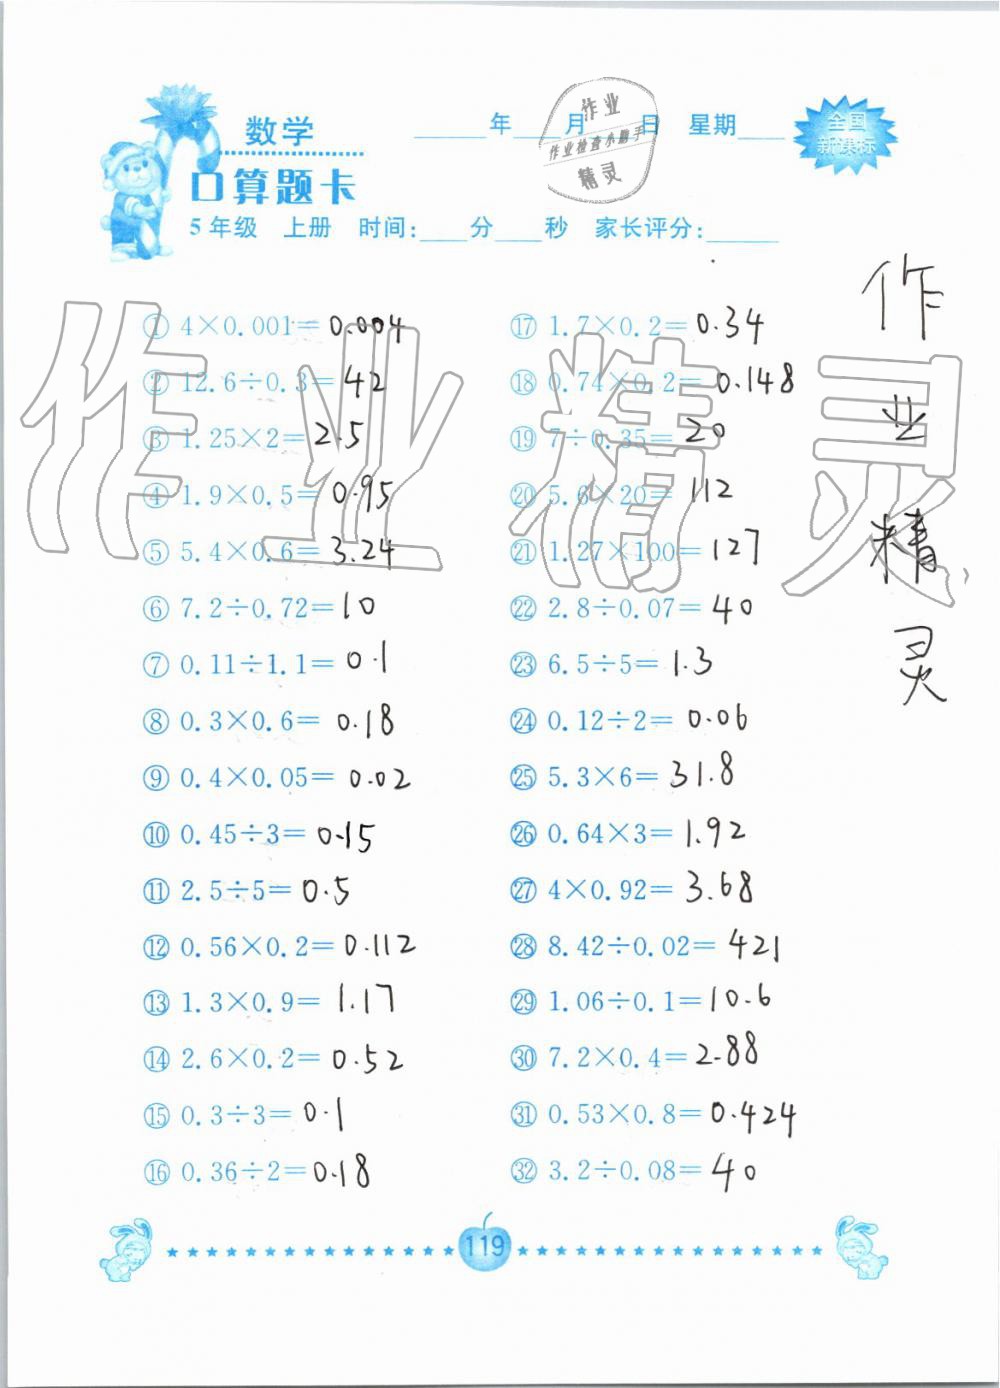 数学
____年____月____日 星期____
全国
新课标
作业
作业检查小助手
精灵
口算题卡
5年级 上册 时间:____分____秒 家长评分:____
① 4×0.001=0.004
② 12.6÷0.3=42
③ 1.25×2=2.5
④ 1.9×0.5=0.95
⑤ 5.4×0.6=3.24
⑥ 7.2÷0.72=10
⑦ 0.11÷1.1=0.1
⑧ 0.3×0.6=0.18
⑨ 0.4×0.05=0.02
⑩ 0.45÷3=0.15
⑪ 2.5÷5=0.5
⑫ 0.56×0.2=0.112
⑬ 1.3×0.9=1.17
⑭ 2.6×0.2=0.52
⑮ 0.3÷3=0.1
⑯ 0.36÷2=0.18
⑰ 1.7×0.2=0.34
⑱ 0.74×0.2=0.148
⑲ 7÷0.35=20
⑳ 5.6×20=112
㉑ 1.27×100=127
㉒ 2.8÷0.07=40
㉓ 6.5÷5=1.3
㉔ 0.12÷2=0.06
㉕ 5.3×6=31.8
㉖ 0.64×3=1.92
㉗ 4×0.92=3.68
㉘ 8.42÷0.02=421
㉙ 1.06÷0.1=10.6
㉚ 7.2×0.4=2.88
㉛ 0.53×0.8=0.424
㉜ 3.2÷0.08=40
作业精灵
作
业
精
灵
119